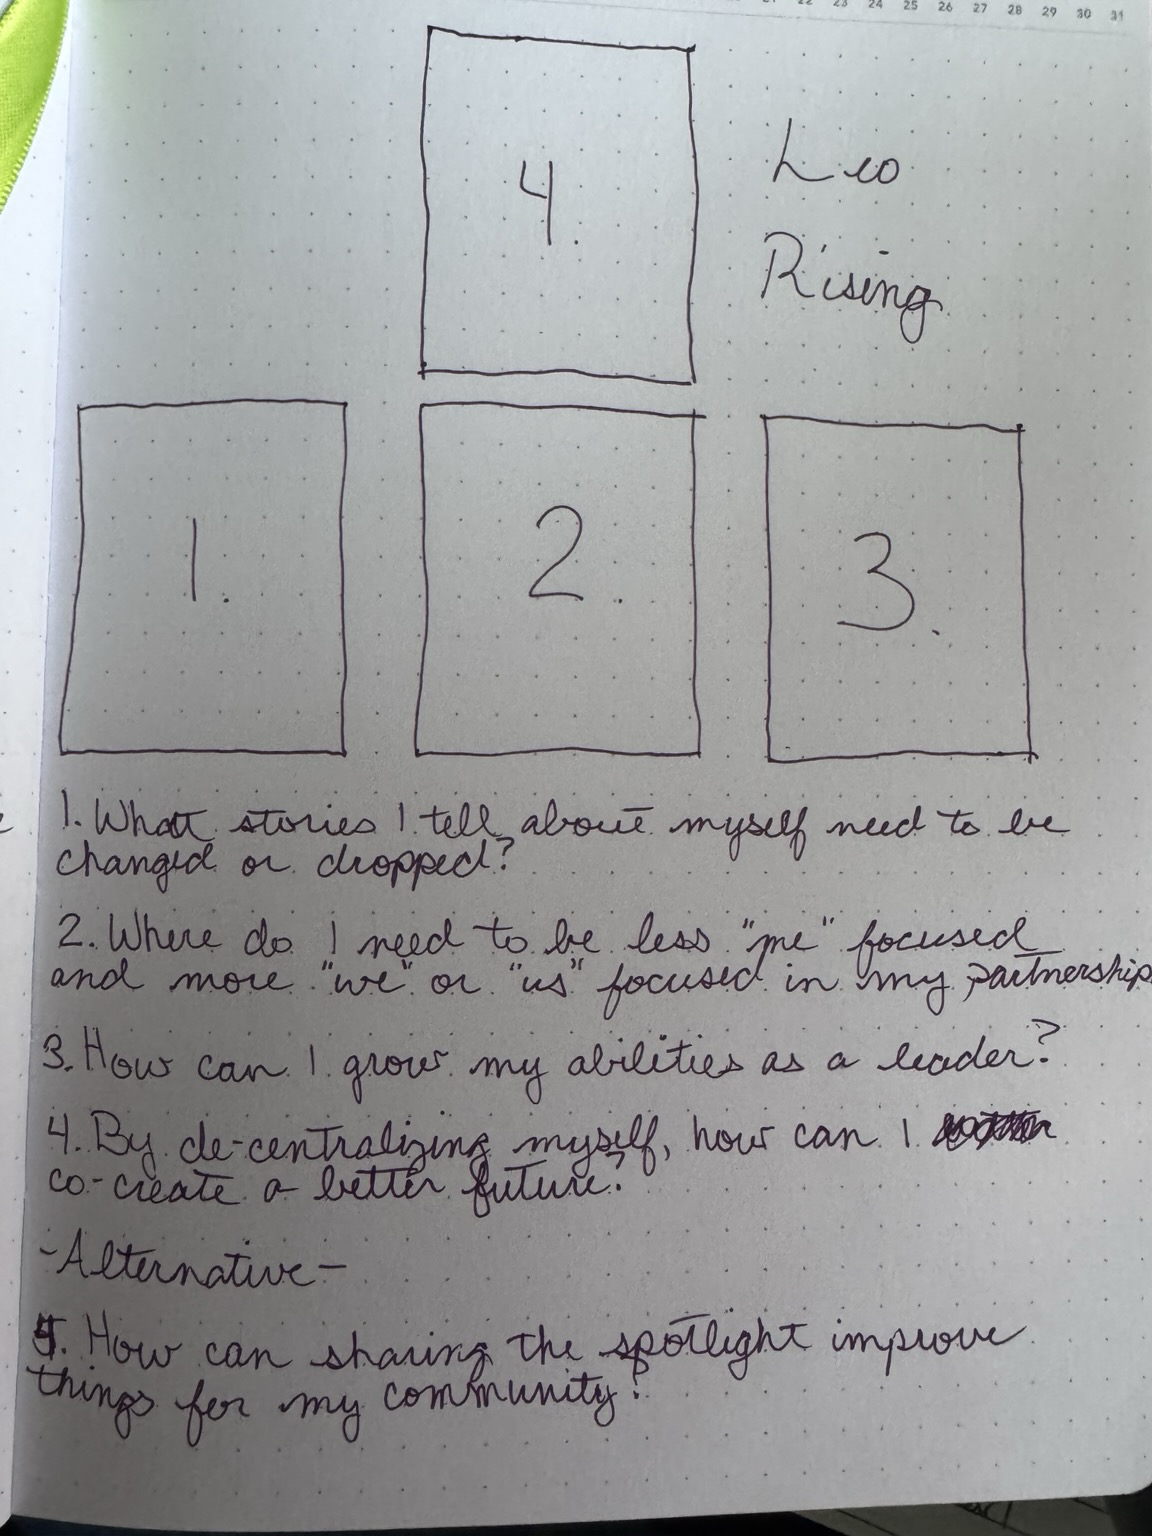 22 23 24 25 26 27 28 29 30 31
4.
Leo
Rising
1.
2.
3.
1. What stories I tell about myself need to be
changed or dropped?
2. Where do I need to be less "me" focused
and more "we" or "us" focused in my partnership
3. How can I grow my abilities as a leader?
4. By de-centralizing myself, how can I
co-create a better future?
-Alternative-
4. How can sharing the spotlight improve
things for my community?